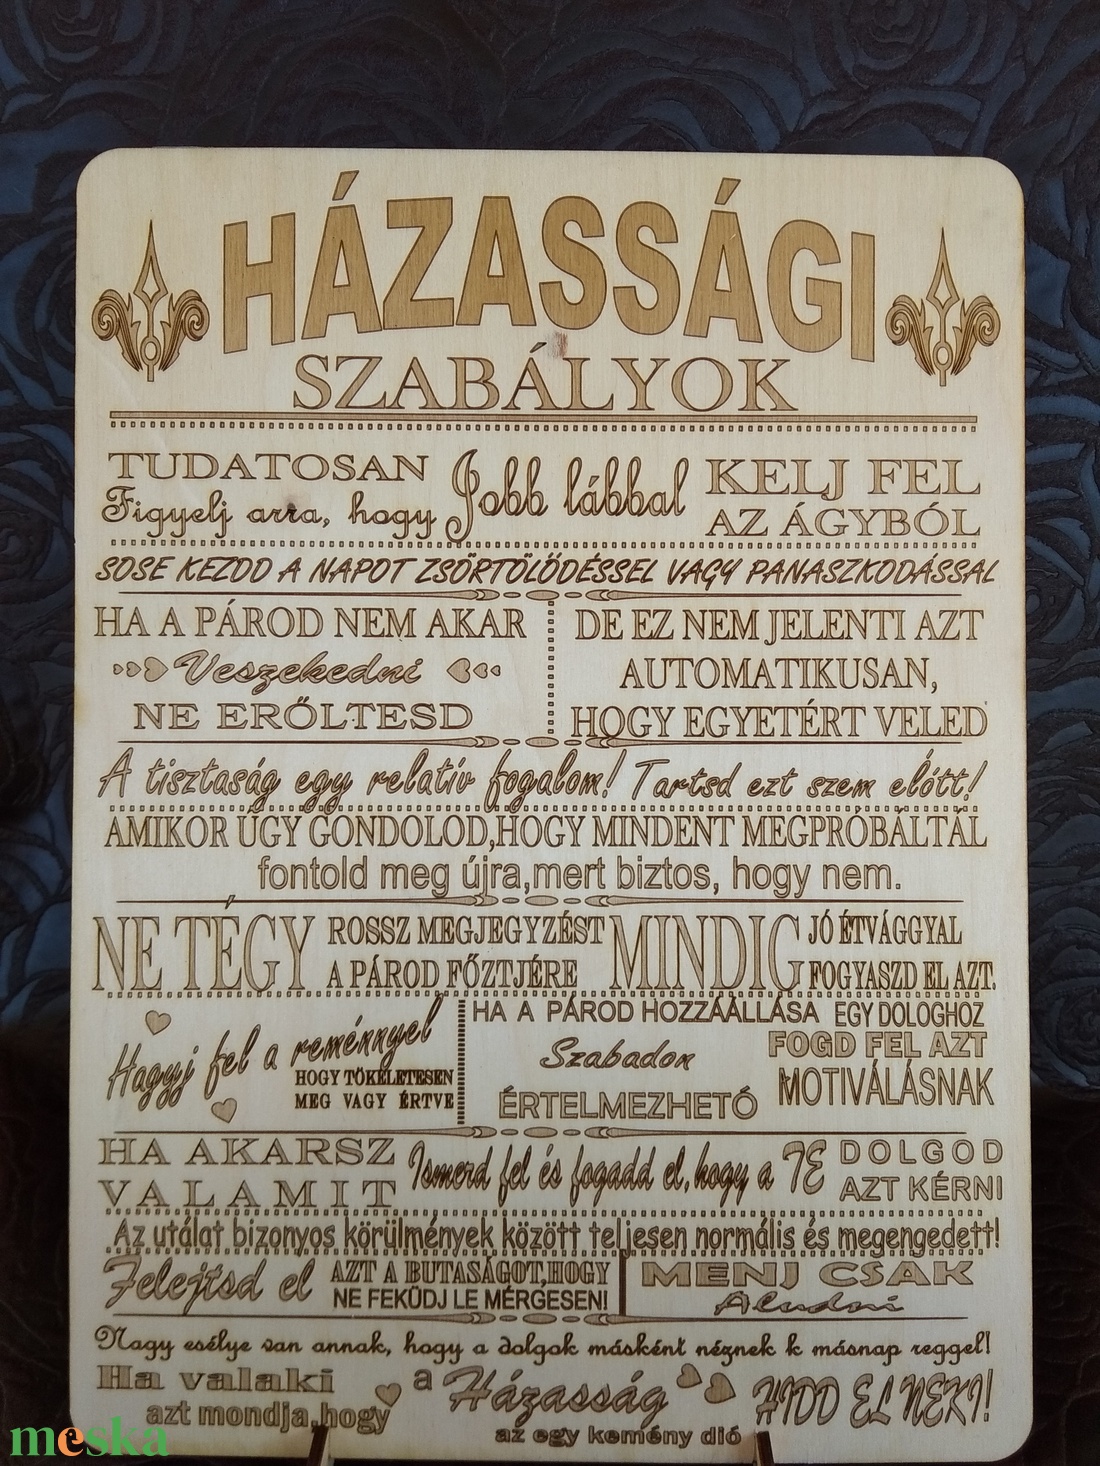 HÁZASSÁGI
SZABÁLYOK
TUDATOSAN
Figyelj arra, hogy
Jobb lábbal
KELJ FEL
AZ ÁGYBÓL
SOSE KEZDD A NAPOT ZSŐRTÖLŐDÉSSEL VAGY PANASZKODÁSSAL
HA A PÁROD NEM AKAR
Veszekedni
NE ERŐLTESD
DE EZ NEM JELENTI AZT
AUTOMATIKUSAN,
HOGY EGYETÉRT VELED
A tisztaság egy relatív fogalom! Tartsd ezt szem előtt!
AMIKOR ÚGY GONDOLOD,HOGY MINDENT MEGPRÓBÁLTÁL
fontold meg újra,mert biztos, hogy nem.
NE TÉGY
ROSSZ MEGJEGYZÉST
A PÁROD FŐZTJÉRE
MINDIG
JÓ ÉTVÁGGYAL
FOGYASZD EL AZT.
Hagyj fel a reménnyel
HOGY TÖKÉLETESEN
MEG VAGY ÉRTVE
HA A PÁROD HOZZÁÁLLÁSA EGY DOLOGHOZ
Szabadon
ÉRTELMEZHETŐ
FOGD FEL AZT
MOTIVÁLÁSNAK
HA AKARSZ
VALAMIT
Ismerd fel és fogadd el,hogy a TE
DOLGOD
AZT KÉRNI
Az utálat bizonyos körülmények között teljesen normális és megengedett!
Felejtsd el
AZT A BUTASÁGOT,HOGY
NE FEKÜDJ LE MÉRGESEN!
MENJ CSAK
Aludni
Nagy esélye van annak, hogy a dolgok másként néznek k másnap reggel!
Ha valaki
azt mondja,hogy
a Házasság
az egy kemény dió
HIDD EL NEKI!
meska